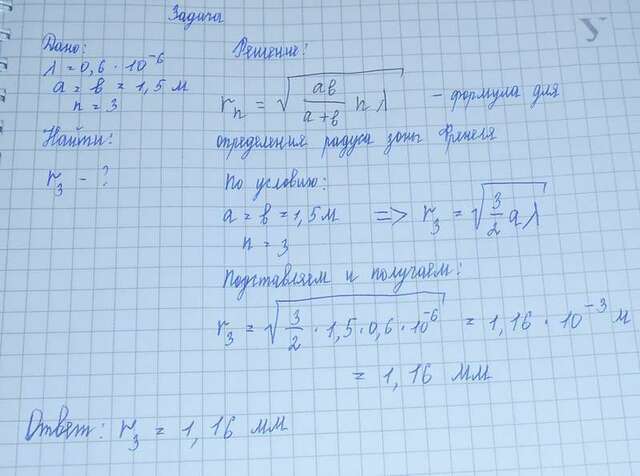 Задача
Дано:
λ = 0,6 · 10⁻⁶
a = b = 1,5 м
n = 3
Найти:
r₃ - ?
Решение:
rₙ = √(ab/(a+b) n λ) - формула для
определения радуса зоны Френеля
По условию:
a = b = 1,5 м => r₃ = √(3/2 a λ)
n = 3
Подставляем и получаем:
r₃ = √(3/2 · 1,5 · 0,6 · 10⁻⁶) = 1,16 · 10⁻³ м
= 1,16 мм
Ответ: r₃ = 1,16 мм
У